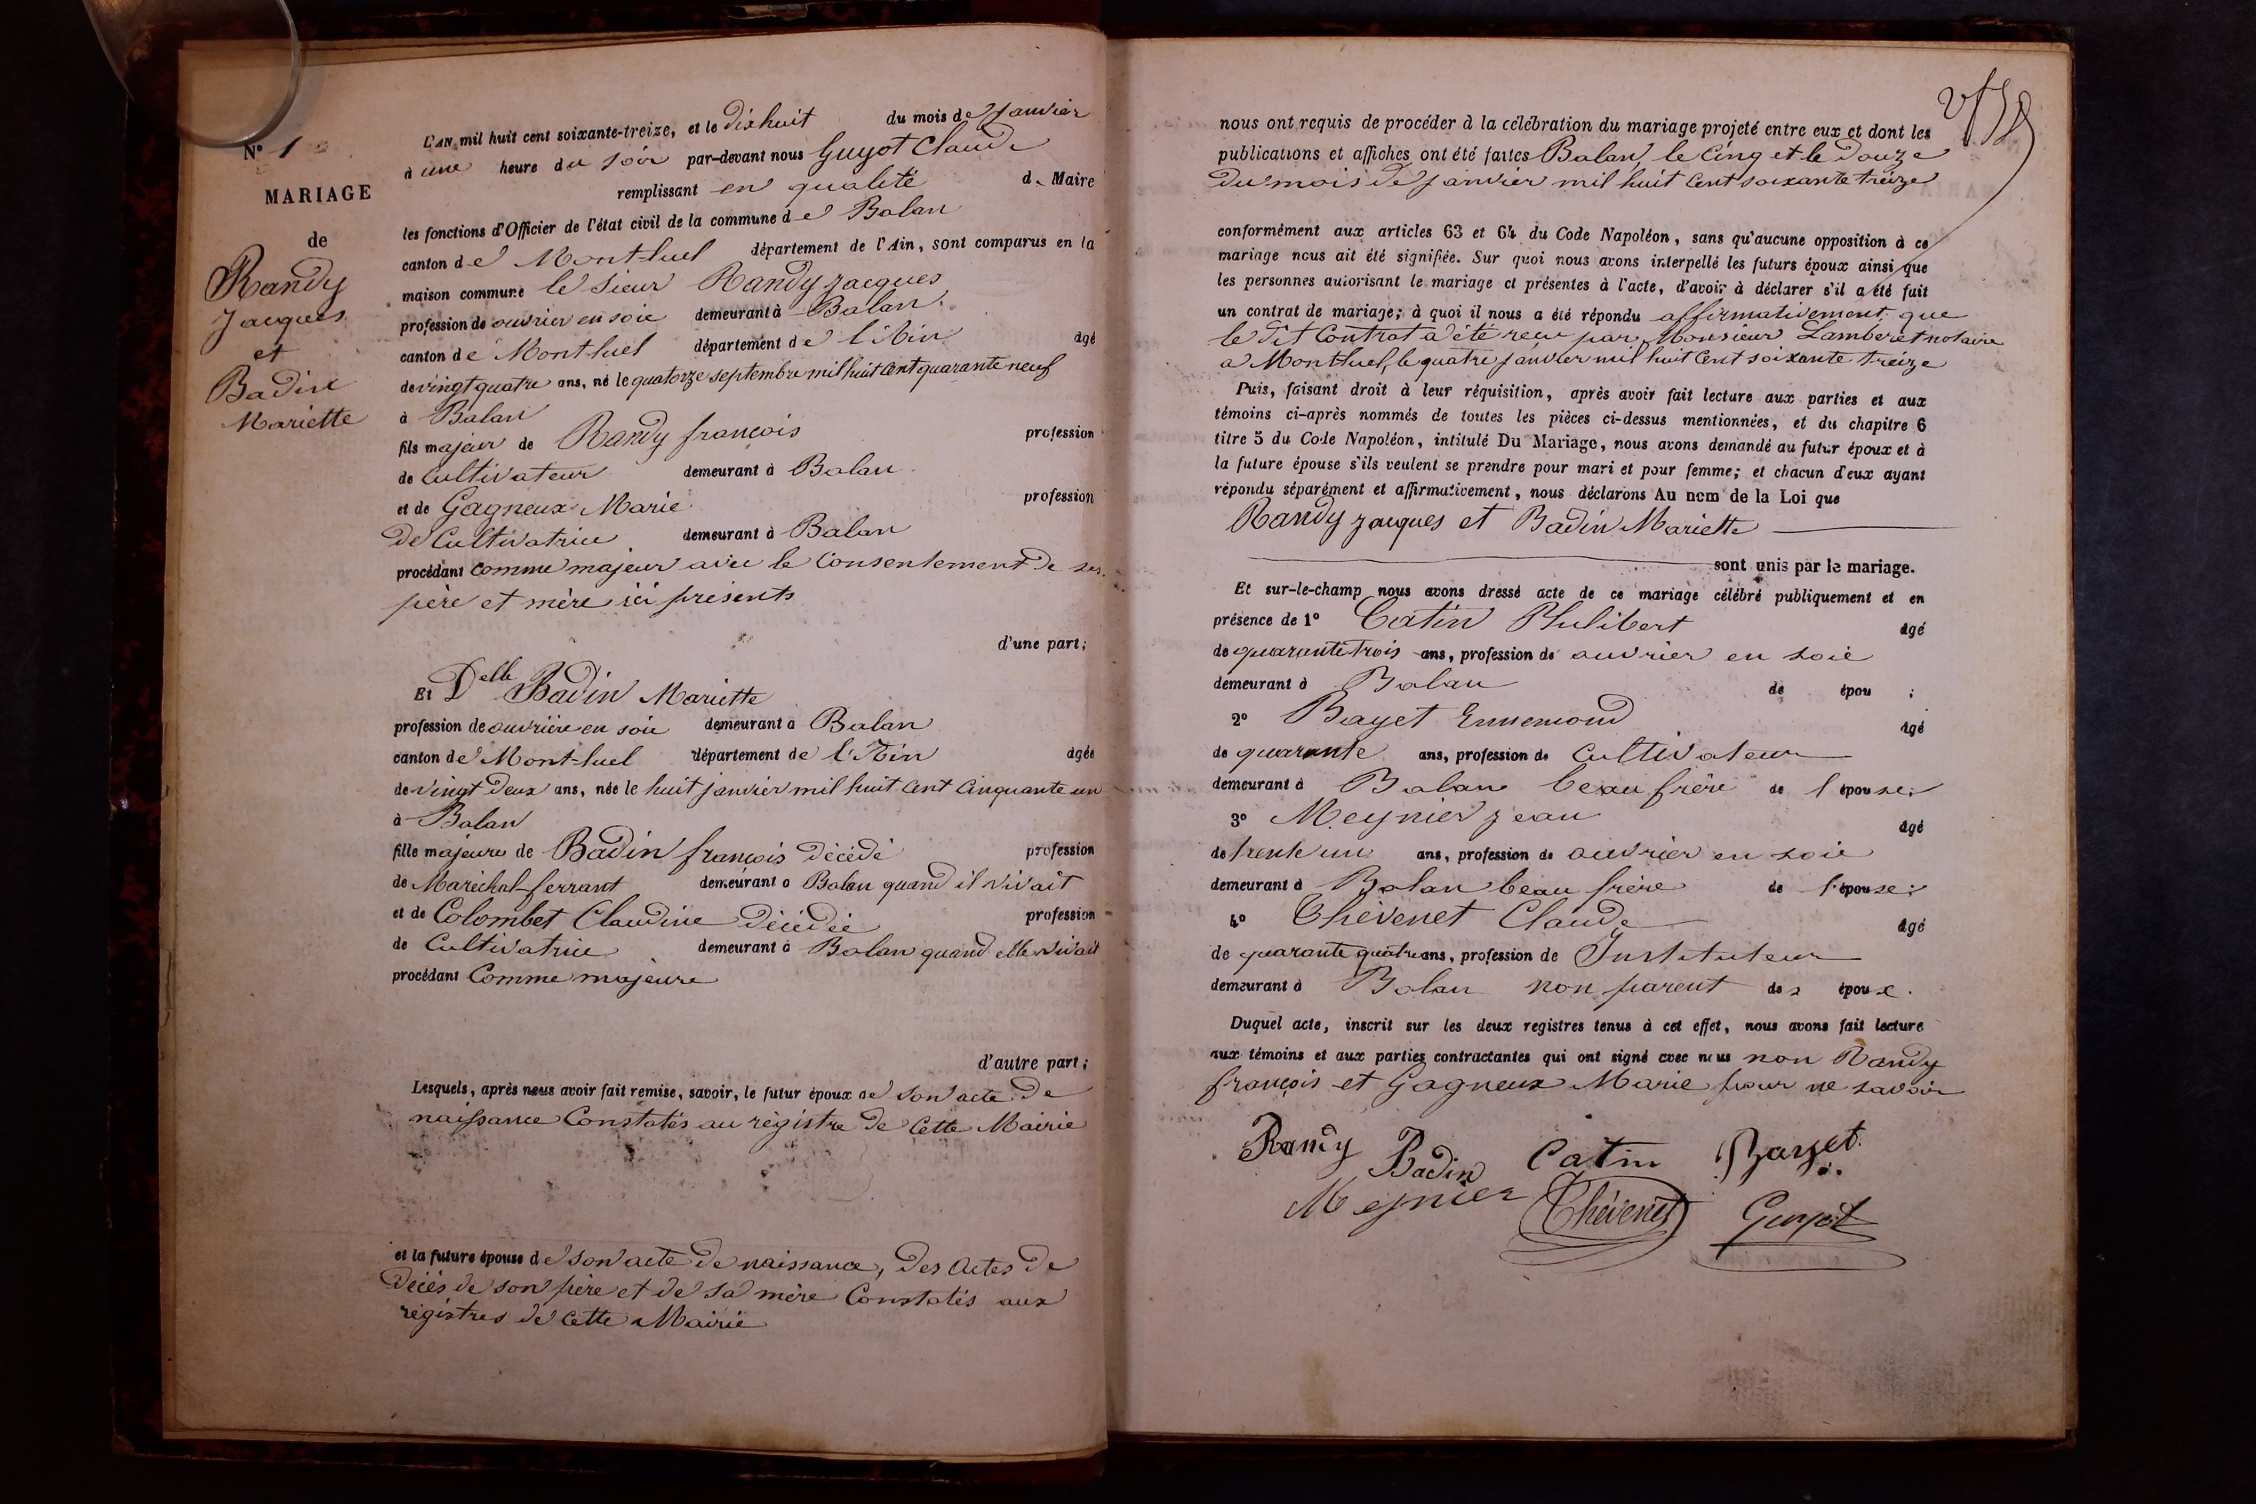 N° 1
MARIAGE
de
Randy
Jacques
et
Badin
Mariette
L'AN mil huit cent soixante-treize, et le dixhuit du mois de Janvier
à une heure du soir par-devant nous Guyot Claude
remplissant en qualité de Maire
les fonctions d'Officier de l'état civil de la commune de Balan
canton de Montluel département de l'Ain, sont comparus en la
maison commune le Sieur Randy Jacques
profession de ouvrier en soie demeurant à Balan
canton de Montluel département de l'Ain âgé
de vingt quatre ans, né le quatorze septembre mil huit cent quarante neuf
à Balan
fils majeur de Randy françois profession
de Cultivateur demeurant à Balan
et de Gagneux Marie profession
de Cultivatrice demeurant à Balan
procédant comme majeur avec le consentement de ses
père et mère ici présents
d'une part;
Et Delle Badin Mariette
profession de ouvrière en soie demeurant à Balan
canton de Montluel département de l'Ain âgée
de vingt deux ans, née le huit janvier mil huit cent cinquante un
à Balan
fille majeure de Badin françois décédé profession
de Maréchal-ferrant demeurant à Balan quand il vivait
et de Colombet Claudine décédée profession
de Cultivatrice demeurant à Balan quand elle vivait
procédant Comme majeure
d'autre part;
Lesquels, après nous avoir fait remise, savoir, le futur époux de son acte de
naissance Constatés au régistre de cette Mairie
et la future épouse de son acte de naissance, des actes de
décès de son père et de sa mère Constatés aux
régistres de cette Mairie
nous ont requis de procéder à la célébration du mariage projeté entre eux et dont les
publications et affiches ont été faites Balan, le Cinq et le Douze
du mois de janvier mil huit cent soixante treize
conformément aux articles 63 et 64 du Code Napoléon, sans qu'aucune opposition à ce
mariage nous ait été signifiée. Sur quoi nous avons interpellé les futurs époux ainsi que
les personnes autorisant le mariage et présentes à l'acte, d'avoir à déclarer s'il a été fait
un contrat de mariage; à quoi il nous a été répondu affirmativement que
le dit Contrat a été reçu par Monsieur Lamberet notaire
a Montluel, le quatre janvier mil huit cent soixante treize
Puis, faisant droit à leur réquisition, après avoir fait lecture aux parties et aux
témoins ci-après nommés de toutes les pièces ci-dessus mentionnées, et du chapitre 6
titre 5 du Code Napoléon, intitulé Du Mariage, nous avons demandé au futur époux et à
la future épouse s'ils veulent se prendre pour mari et pour femme; et chacun d'eux ayant
répondu séparément et affirmativement, nous déclarons Au nom de la Loi que
Randy Jacques et Badin Mariette
sont unis par le mariage.
Et sur-le-champ nous avons dressé acte de ce mariage célébré publiquement et en
présence de 1° Catin Philibert âgé
de quarante trois ans, profession de ouvrier en soie
demeurant à Balan de épou ;
2° Bayet Ennemond âgé
de quarante ans, profession de Cultivateur
demeurant à Balan beau frère de l'épouse;
3° Meynier Jean âgé
de trente un ans, profession de ouvrier en soie
demeurant à Balan beau frère de l'épouse;
4° Thévenet Claude âgé
de quarante quatre ans, profession de Instituteur
demeurant à Balan non parent des époux.
Duquel acte, inscrit sur les deux registres tenus à cet effet, nous avons fait lecture
aux témoins et aux parties contractantes qui ont signé avec nous non Randy
françois et Gagneux Marie pour ne savoir
Randy Badin Catin Bayet
Meynier Thévenet Guyot